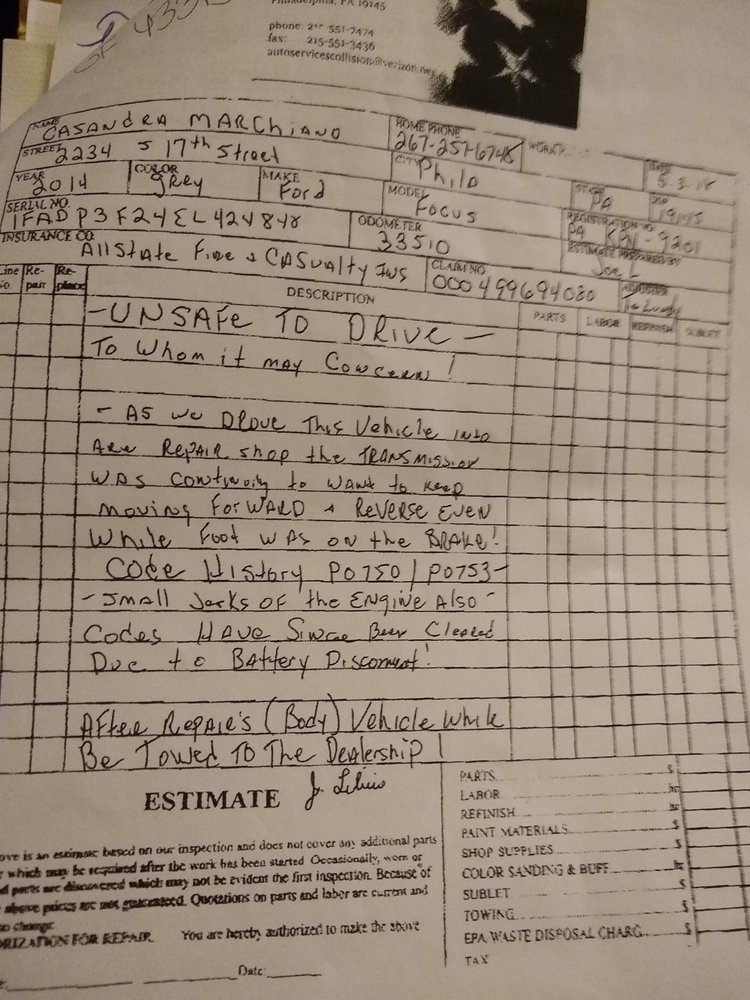 OF 433
Philadelphia, PA 19145
phone: 215-551-7474
fax: 215-551-3436
autoservicescollision@verizon.net
NAME CASANDRA MARCHIANO HOME PHONE 267-257-6748 DATE 5-3-18
STREET 2234 S 17th Street CITY Phila STATE PA ZIP 19145
YEAR 2014 COLOR grey MAKE Ford MODEL Focus REGISTRATION NO PA KPN-9201
SERIAL NO. 1FADP3F24EL424848 ODOMETER 33510 ESTIMATE PREPARED BY Joe L
INSURANCE CO. AllState Fire & CASualty INS CLAIM NO 000499694080 ADJUSTER
Line No. Re-pair Re-place DESCRIPTION PARTS LABOR REFINISH SUBLET
-UNSAFE TO DRIVE-
To Whom it may Concern!
- AS we DROVE This Vehicle into
Are REPAIR shop the TRANSMISSION
WAS continuing to WANT to Keep
moving FORWARD & REVERSE EVEN
While FOOT WAS on the BRAKE!
Code History P0750/P0753-
-Small Jerks of the ENGINE Also-
Codes HAVE Since Been Cleared
Due to BATTERY Disconnect!
AFTER REPAIR'S (Body) Vehicle While
Be Towed TO The Dealership!
ESTIMATE
ove is an estimate based on our inspection and does not cover any additional parts
r which may be required after the work has been started Occasionally, worn or
d parts are discovered which may not be evident the first inspection. Because of
above prices are not guaranteed. Quotations on parts and labor are current and
to change
ORIZATION FOR REPAIR. You are hereby authorized to make the above
Date:
PARTS $
LABOR hr
REFINISH hr
PAINT MATERIALS $
SHOP SUPPLIES $
COLOR SANDING & BUFF hr
SUBLET $
TOWING $
EPA WASTE DISPOSAL CHARG $
TAX